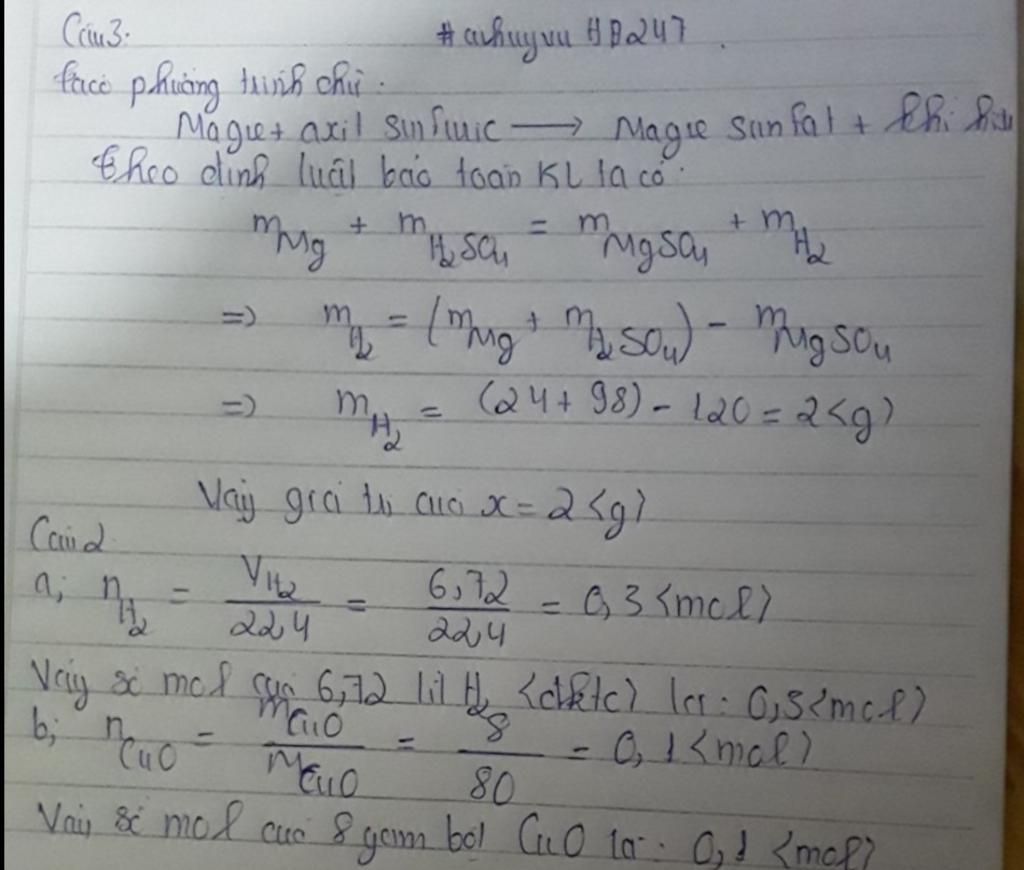 Câu 3: #cuhuyvu HB247.
ta có phương trình chữ:
Magie + axit sunfuric → Magie sunfat + khí hiđro
theo định luật bảo toàn KL ta có:
mMg + mH₂SO₄ = mMgSO₄ + mH₂
=> mH₂ = (mMg + mH₂SO₄) - mMgSO₄
=> mH₂ = (24 + 98) - 120 = 2 <g>
Vậy giá trị của x = 2 <g>
Câu 2
a; nH₂ = VH₂/22,4 = 6,72/22,4 = 0,3 <mol>
Vậy số mol của 6,72 lít H₂ <đktc> là: 0,3 <mol>
b; nCuO = mCuO/MCuO = 8/80 = 0,1 <mol>
Vậy số mol của 8 gam bột CuO là: 0,1 <mol>